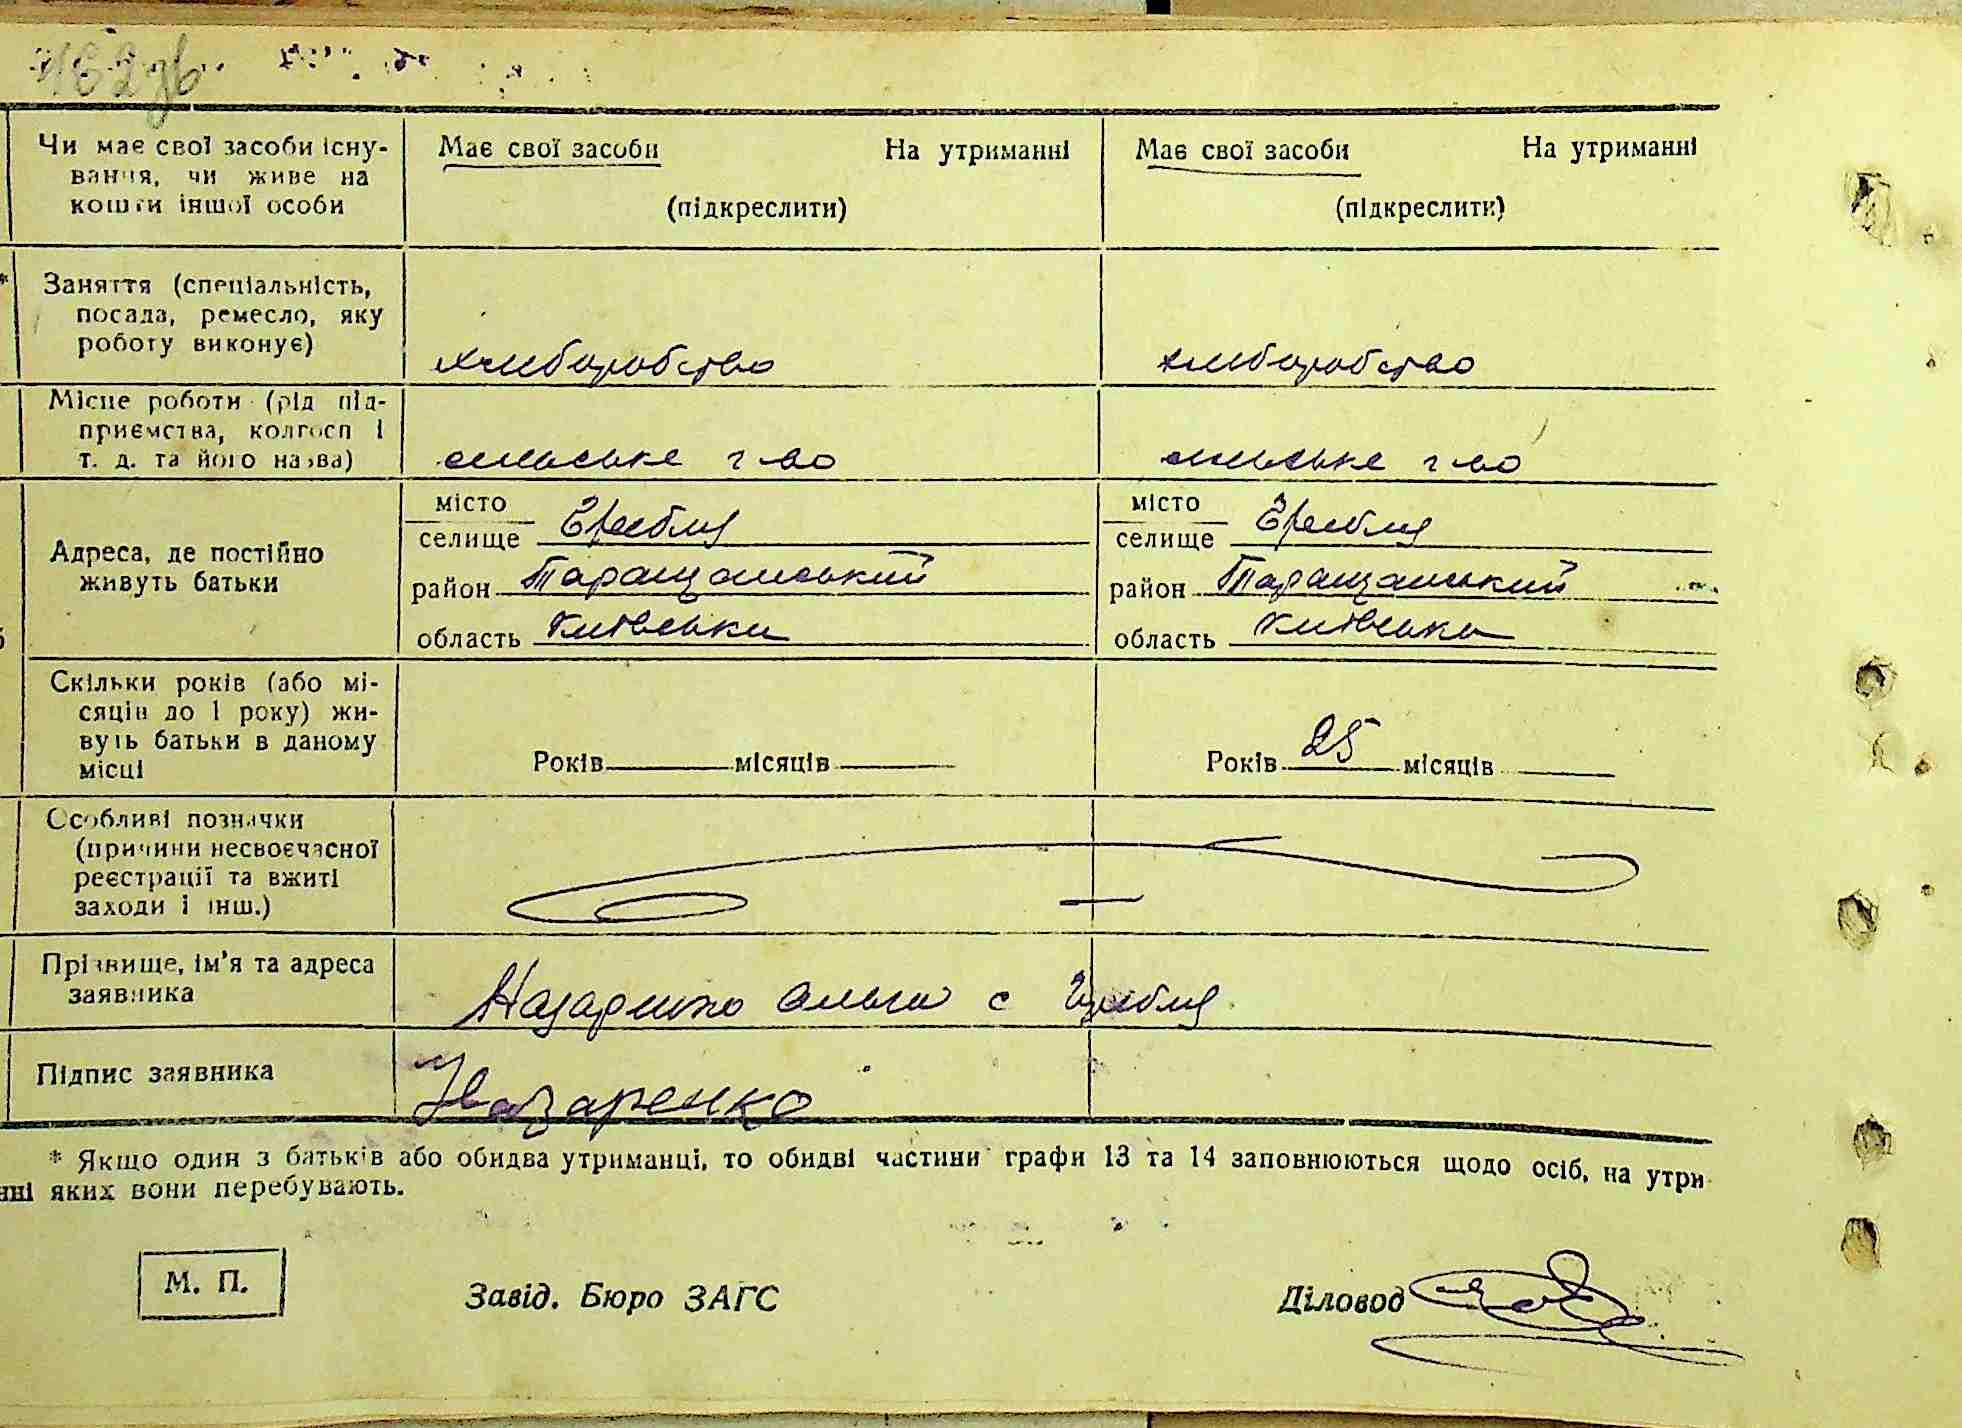 162 зв.
Чи має свої засоби існу-
вання, чи живе на
кошти іншої особи
Має свої засоби На утриманні
(підкреслити)
Має свої засоби На утриманні
(підкреслити)
*
Заняття (спеціальність,
посада, ремесло, яку
роботу виконує)
хлиборобство
хлиборобство
Місце роботи (рід під-
приємства, колгосп і
т. д. та його назва)
сильське г-во
сильське г-во
Адреса, де постійно
живуть батьки
місто
селище Гребля
район Таращанський
область Київська
місто
селище Гребля
район Таращанський
область Київська
Скільки років (або мі-
сяців до 1 року) жи-
вуть батьки в даному
місці
Років місяців
Років 25 місяців
Особливі позначки
(причини несвоєчасної
реєстрації та вжиті
заходи і інш.)
Прізвище, ім'я та адреса
заявника
Назаренко Ольга с Гребля
Підпис заявника
Назаренко
* Якщо один з батьків або обидва утриманці, то обидві частини графи 13 та 14 заповнюються щодо осіб, на утри
нні яких вони перебувають.
М. П.
Завід. Бюро ЗАГС
Діловод